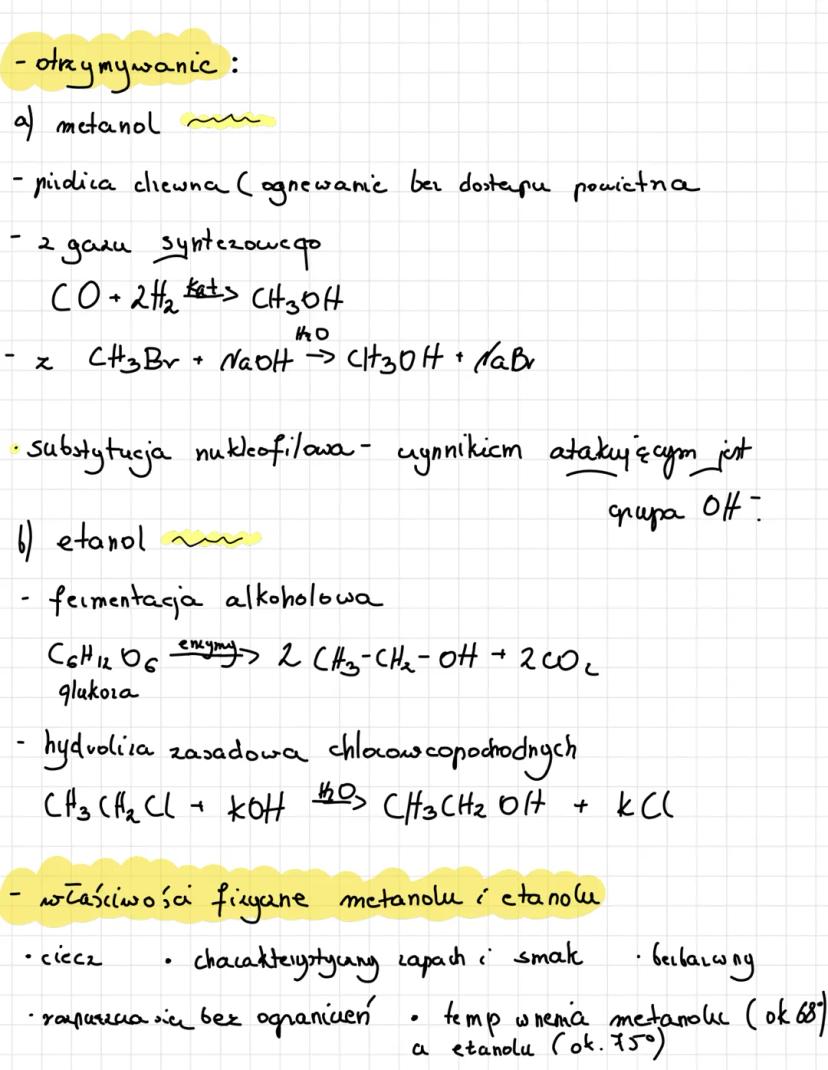 - otrzymywanie :
a) metanol
- piroliza drewna ( ogrzewanie bez dostępu powietrza
- z gazu syntezowego
CO + 2H₂ kat→ CH₃OH
- z CH₃Br + NaOH H₂O→ CH₃OH + NaBr
• substytucja nukleofilowa - czynnikiem atakującym jest
grupa OH⁻
b) etanol
- fermentacja alkoholowa
C₆H₁₂O₆ enzymy→ 2 CH₃-CH₂-OH + 2CO₂
glukoza
- hydroliza zasadowa chlorowcopochodnych
CH₃CH₂Cl + KOH H₂O→ CH₃CH₂OH + KCl
- właściwości fizyczne metanolu i etanolu
• ciecz • charakterystyczny zapach i smak • bezbarwny
• rozpuszcza się bez ograniczeń • temp wrzenia metanolu (ok 68°)
a etanolu (ok. 75°)